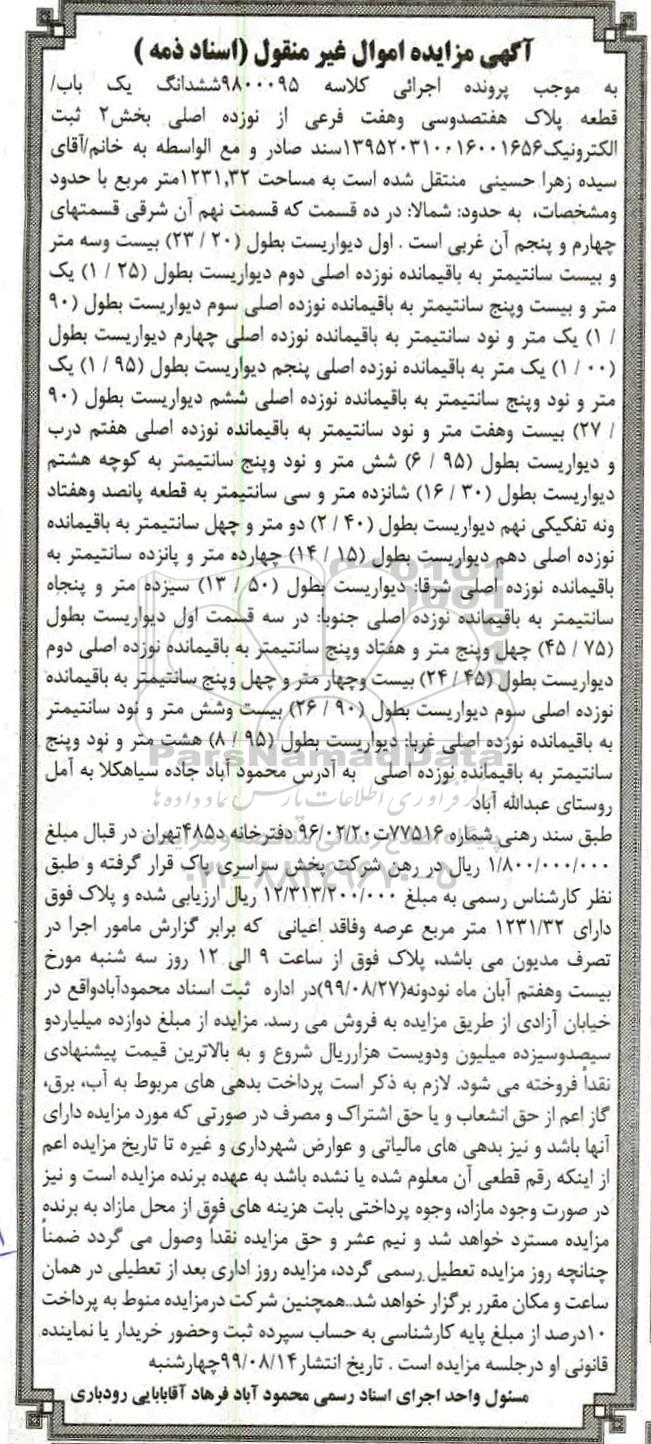 آگهی مزایده اموال غیر منقول (اسناد ذمه )
به موجب پرونده اجرائی کلاسه ۹۸۰۰۰۹۵ششدانگ یک باب/
قطعه پلاک هفتصدوسی وهفت فرعی از نوزده اصلی بخش۲ ثبت
الکترونیک۱۳۹۵۲۰۳۱۰۰۱۶۰۰۱۶۵۶سند صادر و مع الواسطه به خانم/آقای
سیده زهرا حسینی منتقل شده است به مساحت ۱۲۳۱,۳۲متر مربع با حدود
ومشخصات، به حدود: شمالا: در ده قسمت که قسمت نهم آن شرقی قسمتهای
چهارم و پنجم آن غربی است . اول دیواریست بطول (۲۰ / ۲۳) بیست وسه متر
و بیست سانتیمتر به باقیمانده نوزده اصلی دوم دیواریست بطول (۲۵ / ۱) یک
متر و بیست وپنج سانتیمتر به باقیمانده نوزده اصلی سوم دیواریست بطول (۹۰
/ ۱) یک متر و نود سانتیمتر به باقیمانده نوزده اصلی چهارم دیواریست بطول
(۰۰ / ۱) یک متر به باقیمانده نوزده اصلی پنجم دیواریست بطول (۹۵ / ۱) یک
متر و نود وپنج سانتیمتر به باقیمانده نوزده اصلی ششم دیواریست بطول (۹۰
/ ۲۷) بیست وهفت متر و نود سانتیمتر به باقیمانده نوزده اصلی هفتم درب
و دیواریست بطول (۹۵ / ۶) شش متر و نود وپنج سانتیمتر به کوچه هشتم
دیواریست بطول (۳۰ / ۱۶) شانزده متر و سی سانتیمتر به قطعه پانصد وهفتاد
ونه تفکیکی نهم دیواریست بطول (۴۰ / ۲) دو متر و چهل سانتیمتر به باقیمانده
نوزده اصلی دهم دیواریست بطول (۱۵ / ۱۴) چهارده متر و پانزده سانتیمتر به
باقیمانده نوزده اصلی شرقا: دیواریست بطول (۵۰ / ۱۳) سیزده متر و پنجاه
سانتیمتر به باقیمانده نوزده اصلی جنوبا: در سه قسمت اول دیواریست بطول
(۷۵ / ۴۵) چهل وپنج متر و هفتاد وپنج سانتیمتر به باقیمانده نوزده اصلی دوم
دیواریست بطول (۴۵ / ۲۴) بیست وچهار متر و چهل وپنج سانتیمتر به باقیمانده
نوزده اصلی سوم دیواریست بطول (۹۰ / ۲۶) بیست وشش متر و نود سانتیمتر
به باقیمانده نوزده اصلی غربا: دیواریست بطول (۹۵ / ۸) هشت متر و نود وپنج
سانتیمتر به باقیمانده نوزده اصلی به آدرس محمود آباد جاده سیاهکلا به آمل
روستای عبدالله آباد
طبق سند رهنی شماره ۷۷۵۱۶ت۹۶/۰۲/۲۰ دفترخانه د۴۸۵تهران در قبال مبلغ
۱/۸۰۰/۰۰۰/۰۰۰ ریال در رهن شرکت پخش سراسری پاک قرار گرفته و طبق
نظر کارشناس رسمی به مبلغ ۱۲/۳۱۳/۲۰۰/۰۰۰ ریال ارزیابی شده و پلاک فوق
دارای ۱۲۳۱/۳۲ متر مربع عرصه وفاقد اعیانی که برابر گزارش مامور اجرا در
تصرف مدیون می باشد، پلاک فوق از ساعت ۹ الی ۱۲ روز سه شنبه مورخ
بیست وهفتم آبان ماه نودونه(۹۹/۰۸/۲۷)در اداره ثبت اسناد محمودآبادواقع در
خیابان آزادی از طریق مزایده به فروش می رسد. مزایده از مبلغ دوازده میلیاردو
سیصدوسیزده میلیون ودویست هزارریال شروع و به بالاترین قیمت پیشنهادی
نقداً فروخته می شود. لازم به ذکر است پرداخت بدهی های مربوط به آب، برق،
گاز اعم از حق انشعاب و یا حق اشتراک و مصرف در صورتی که مورد مزایده دارای
آنها باشد و نیز بدهی های مالیاتی و عوارض شهرداری و غیره تا تاریخ مزایده اعم
از اینکه رقم قطعی آن معلوم شده یا نشده باشد به عهده برنده مزایده است و نیز
در صورت وجود مازاد، وجوه پرداختی بابت هزینه های فوق از محل مازاد به برنده
مزایده مسترد خواهد شد و نیم عشر و حق مزایده نقداً وصول می گردد ضمناً
چنانچه روز مزایده تعطیل رسمی گردد، مزایده روز اداری بعد از تعطیلی در همان
ساعت و مکان مقرر برگزار خواهد شد..همچنین شرکت درمزایده منوط به پرداخت
۱۰درصد از مبلغ پایه کارشناسی به حساب سپرده ثبت وحضور خریدار یا نماینده
قانونی او درجلسه مزایده است . تاریخ انتشار۹۹/۰۸/۱۴چهارشنبه
مسئول واحد اجرای اسناد رسمی محمود آباد فرهاد آقابابایی رودباری
ParsNamadData